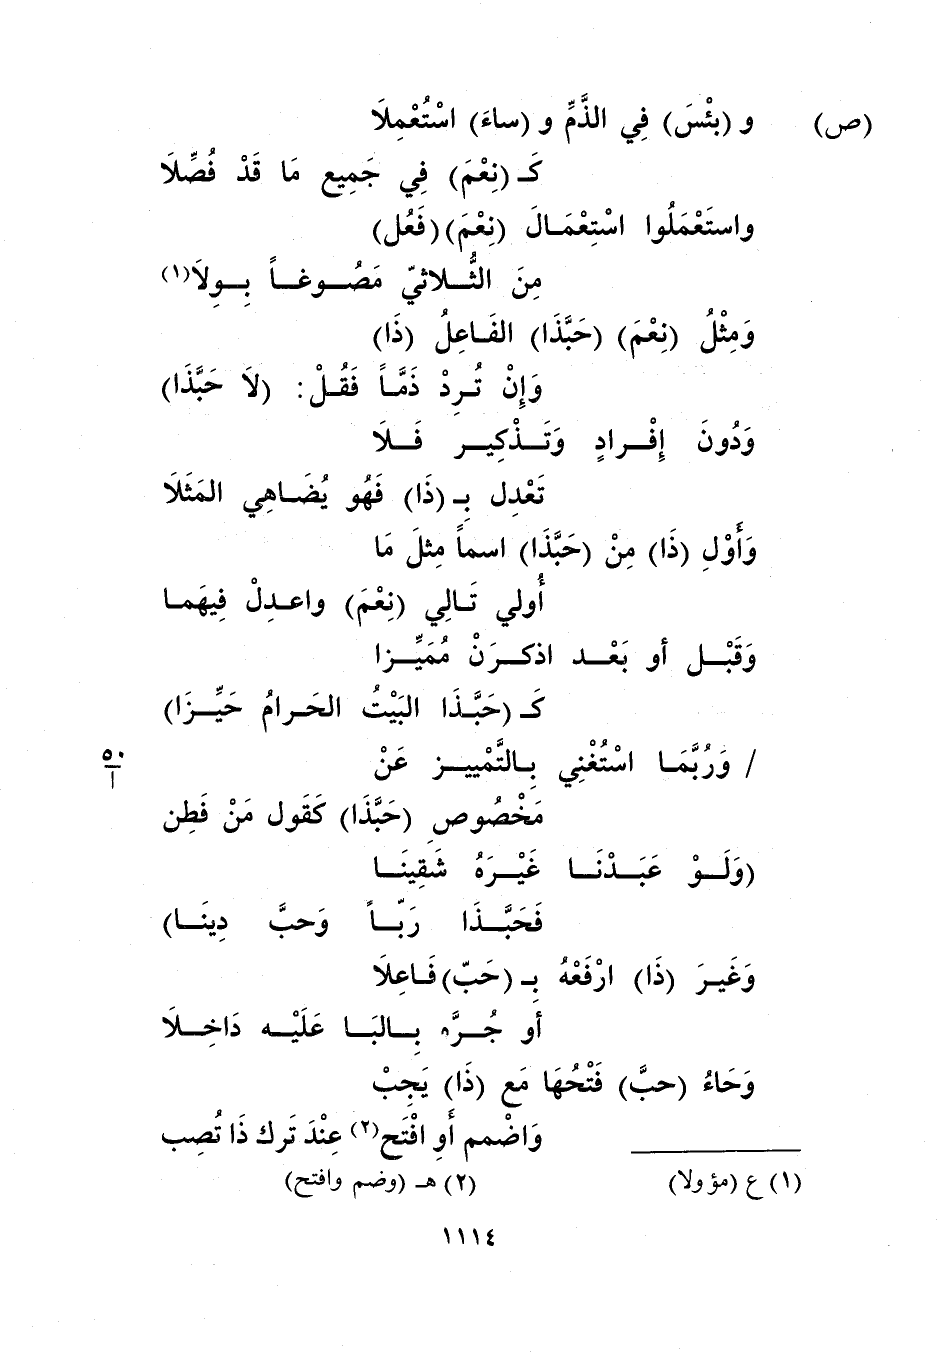 (ص) و (بِئْسَ) فِي الذَّمِّ و (ساءَ) اسْتُعْمِلَا
كَـ (نِعْمَ) فِي جَمِيعِ مَا قَدْ فُصِّلَا
واستَعْمَلُوا اسْتِعْمَـالَ (نِعْمَ) (فَعُل)
مِنَ الثُّـلاثيّ مَصُـوغـاً بِـولَا(١)
وَمِثْلُ (نِعْمَ) (حَبَّذَا) الفَـاعِلُ (ذَا)
وَإِنْ تُـرِدْ ذَمَّـاً فَقُـلْ: (لَا حَبَّذَا)
وَدُونَ إِفْـرادٍ وَتَـذْكِيـر فَـلَا
تَعْدِل بِـ (ذَا) فَهُو يُضَـاهِي المَثَلَا
وَأَوْلِ (ذَا) مِنْ (حَبَّذَا) اسماً مِثلَ مَا
أُولي تَـالِي (نِعْمَ) واعـدِلْ فِيهَمـا
وَقَبْـل أو بَعْـد اذكـرَنْ مُمَيِّـزا
كَـ (حَبَّـذَا البَيْتُ الحَـرامُ حَيِّـزَا)
/ وَرُبَّمَـا اسْتُغْنِي بِـالتَّمْييـز عَنْ
٥٠
أ
مَخْصُوصِ (حَبَّذَا) كَقَول مَنْ فَطِن
(وَلَـوْ عَبَـدْنَـا غَيْـرَهُ شَقِينَـا
فَحَبَّـذَا رَبّـاً وَحبَّ دِينَـا)
وَغَيـرَ (ذَا) ارْفَعْهُ بِـ (حَبّ) فَـاعِلَا
أو جُـرَّه بِـالبَـا عَلَيْـه دَاخِـلَا
وَحَاءُ (حبَّ) فَتْحُهَا مَع (ذَا) يَجِبْ
وَاضْمم أَو افْتَح(٢) عِنْدَ تَرك ذَا تُصِب
(١) ع (مؤولا) (٢) هـ (وضم وافتح)
١١١٤